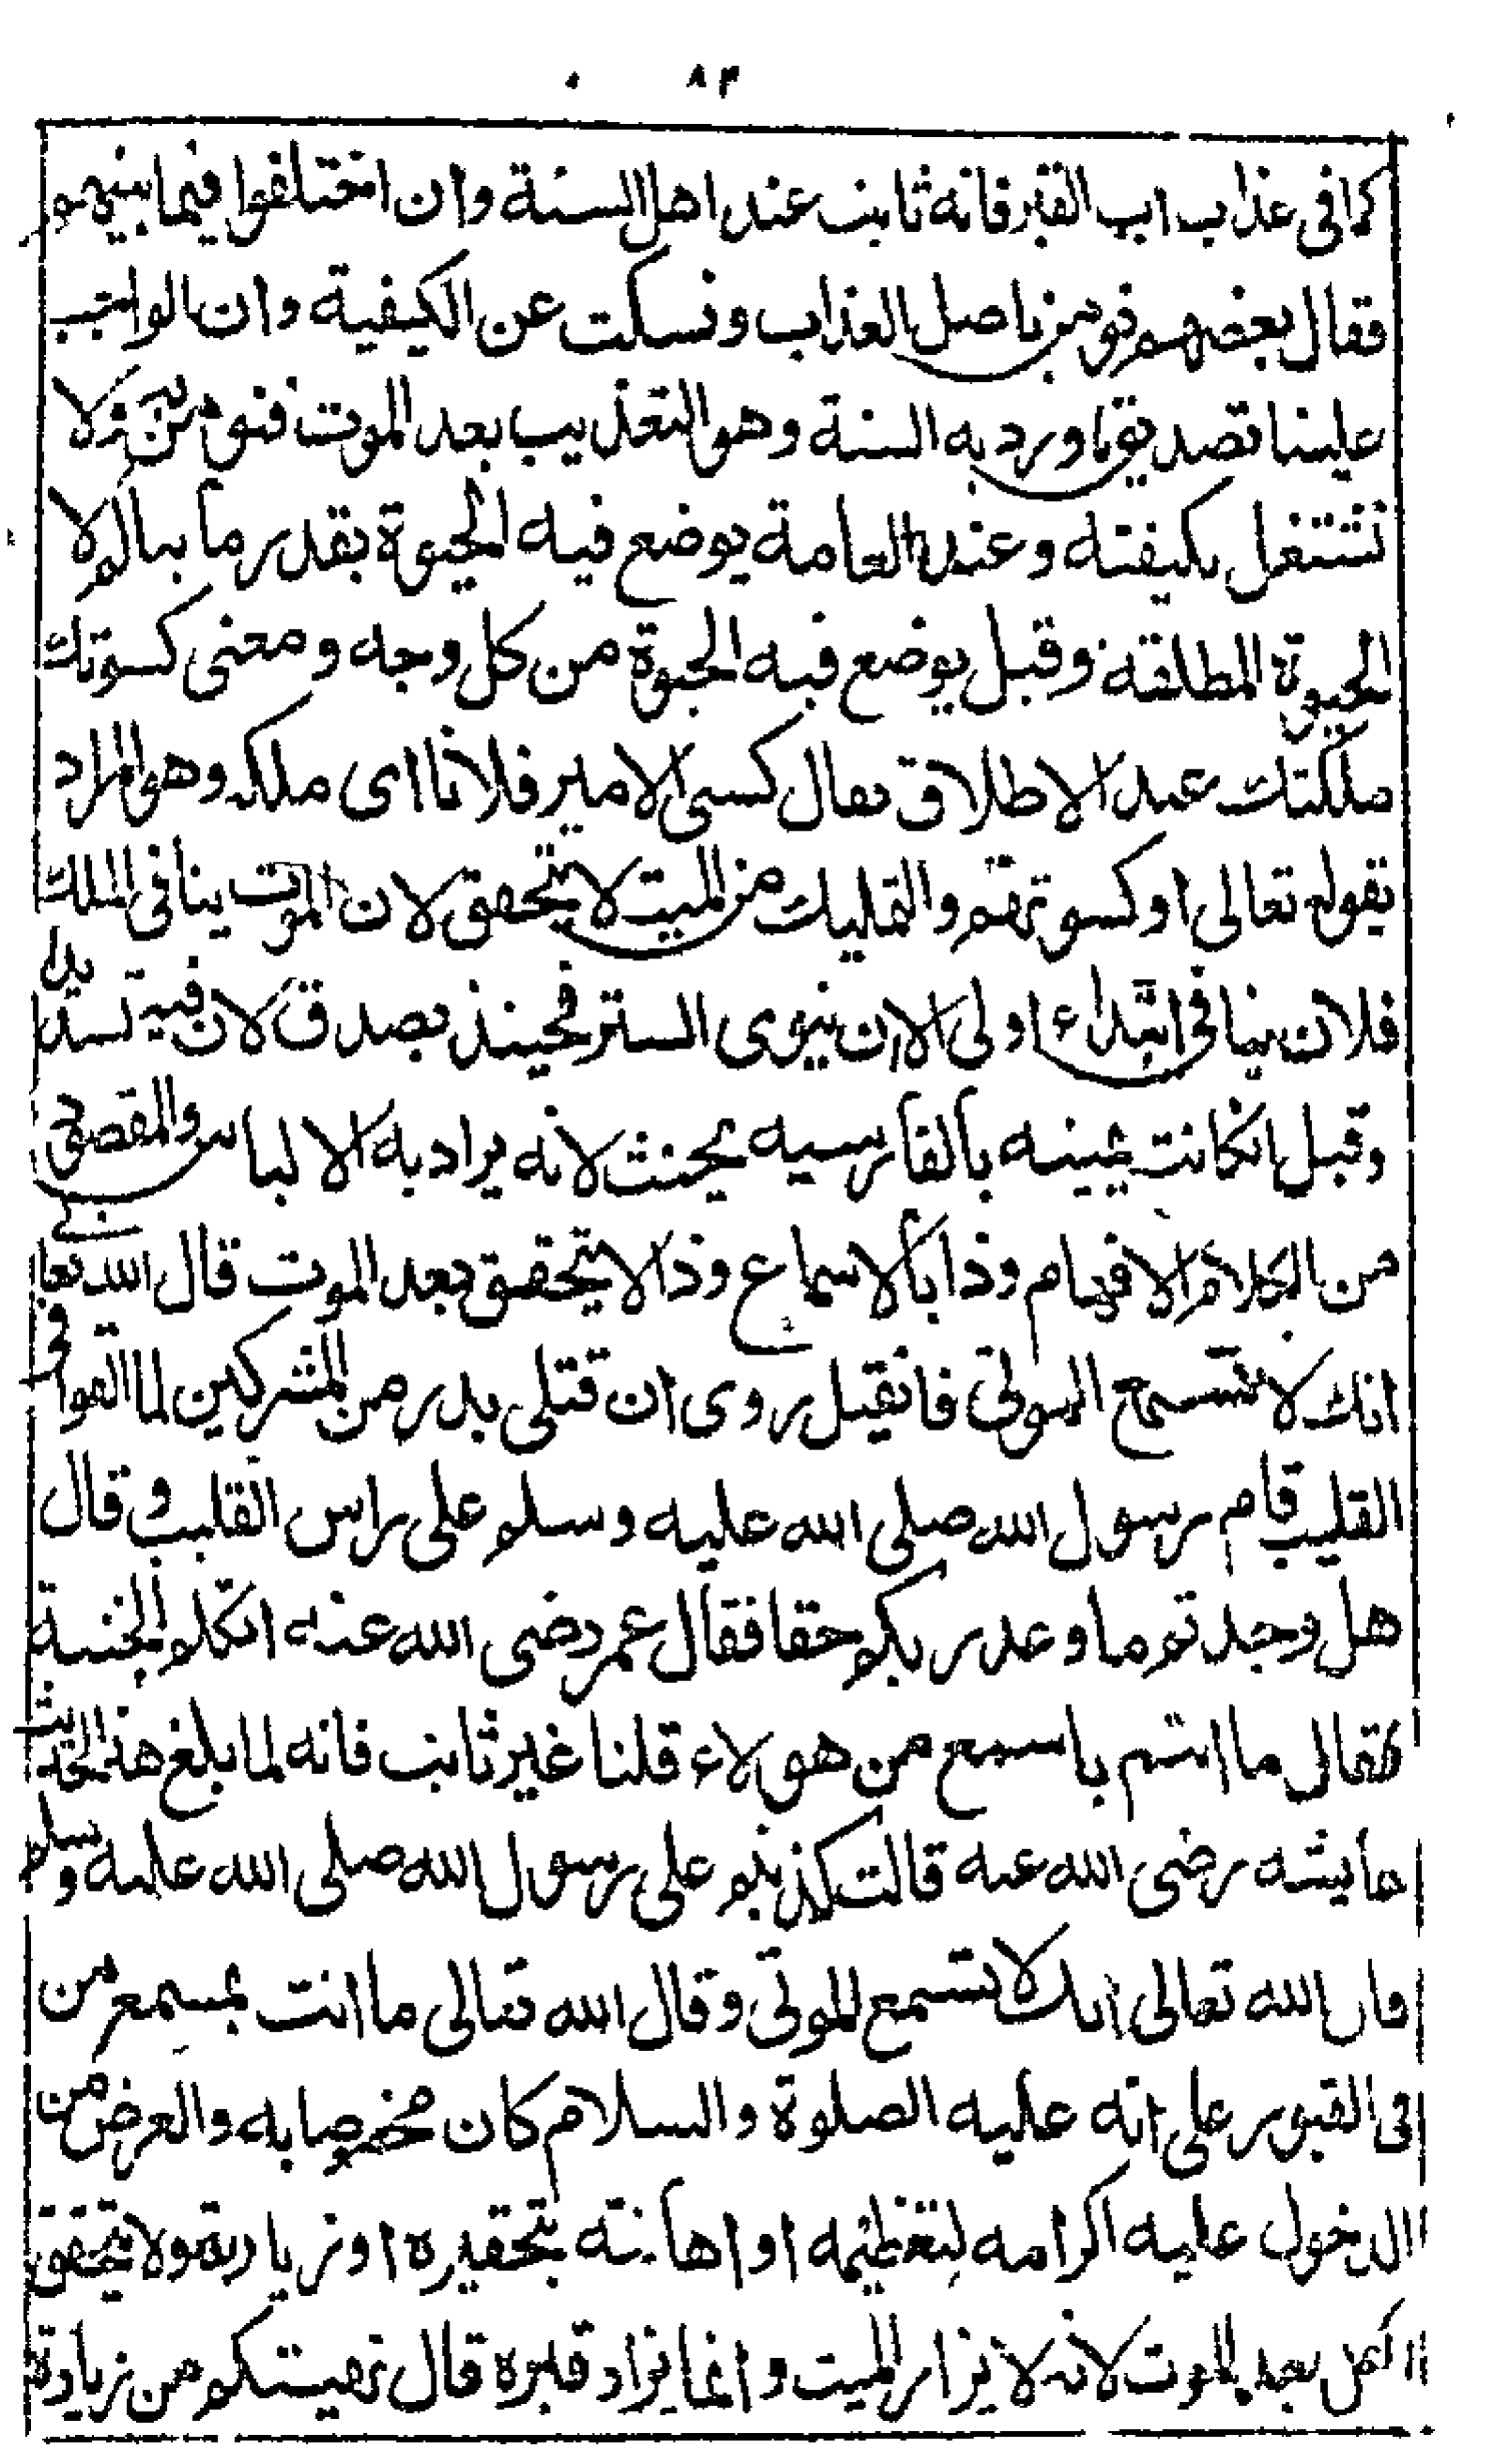 ٨٣
كما فى عذاب اب القبر فانه ثابت عند اهل السنة وان اختلفوا فيما بينهم
فقال بعضهم نومن باصل العذاب ونسكت عن الكيفية وان الواجب
علينا تصديق ما ورد به السنة وهو التعذيب بعد الموت فنومن به ولا
نشتغل بكيفته وعند العامة يوضع فيه الحيوة بقدر ما يتالم لا
الحيوة المطلقة وقيل يوضع فيه الحيوة من كل وجه ومعنى كسوتك
ملكتك عند الاطلاق يقال كسى الامير فلانا اى ملكه وهو المراد
بقوله تعالى او كسوتهم والتمليك من الميت لا يتحقق لان الموت ينافى الملك
فلان ينافى ابتداءه اولى الا ان ينوى الستر فحينئذ يصدق لان فيه تشديدا
وقيل انكانت يمينه بالفارسيه يحنث لانه يراد به الالباس والمقصود
من الكلام الافهام وذا بالاسماع وذا لا يتحقق بعد الموت قال الله تعا
انك لا تسمع الموتى فانقيل روى ان قتلى بدر من المشركين لما القوا فى
القليب قام رسول الله صلى الله عليه وسلم على راس القليب وقال
هل وجدتم ما وعد ربكم حقا فقال عمر رضى الله عنه اتكلم الجنسة
فقال ما انتم باسمع من هولاء قلنا غير ثابت فانه لما بلغ هذا الحديث
عايشه رضى الله عنه قالت كذبتم على رسول الله صلى الله عليه وسلم
قال الله تعالى انك لا تسمع الموتى وقال الله تعالى ما انت بمسمع من
فى القبور على انه عليه الصلوة والسلام كان مخصوصا به والغرض من
الدخول عليه اكرامه لتعظيمه او اهانته بتحقيره او زيارته ولا يتحقق
الكل بعد الموت لانه لا يزار الميت وانما يزاد قبره قال نهيتكم من زيادة